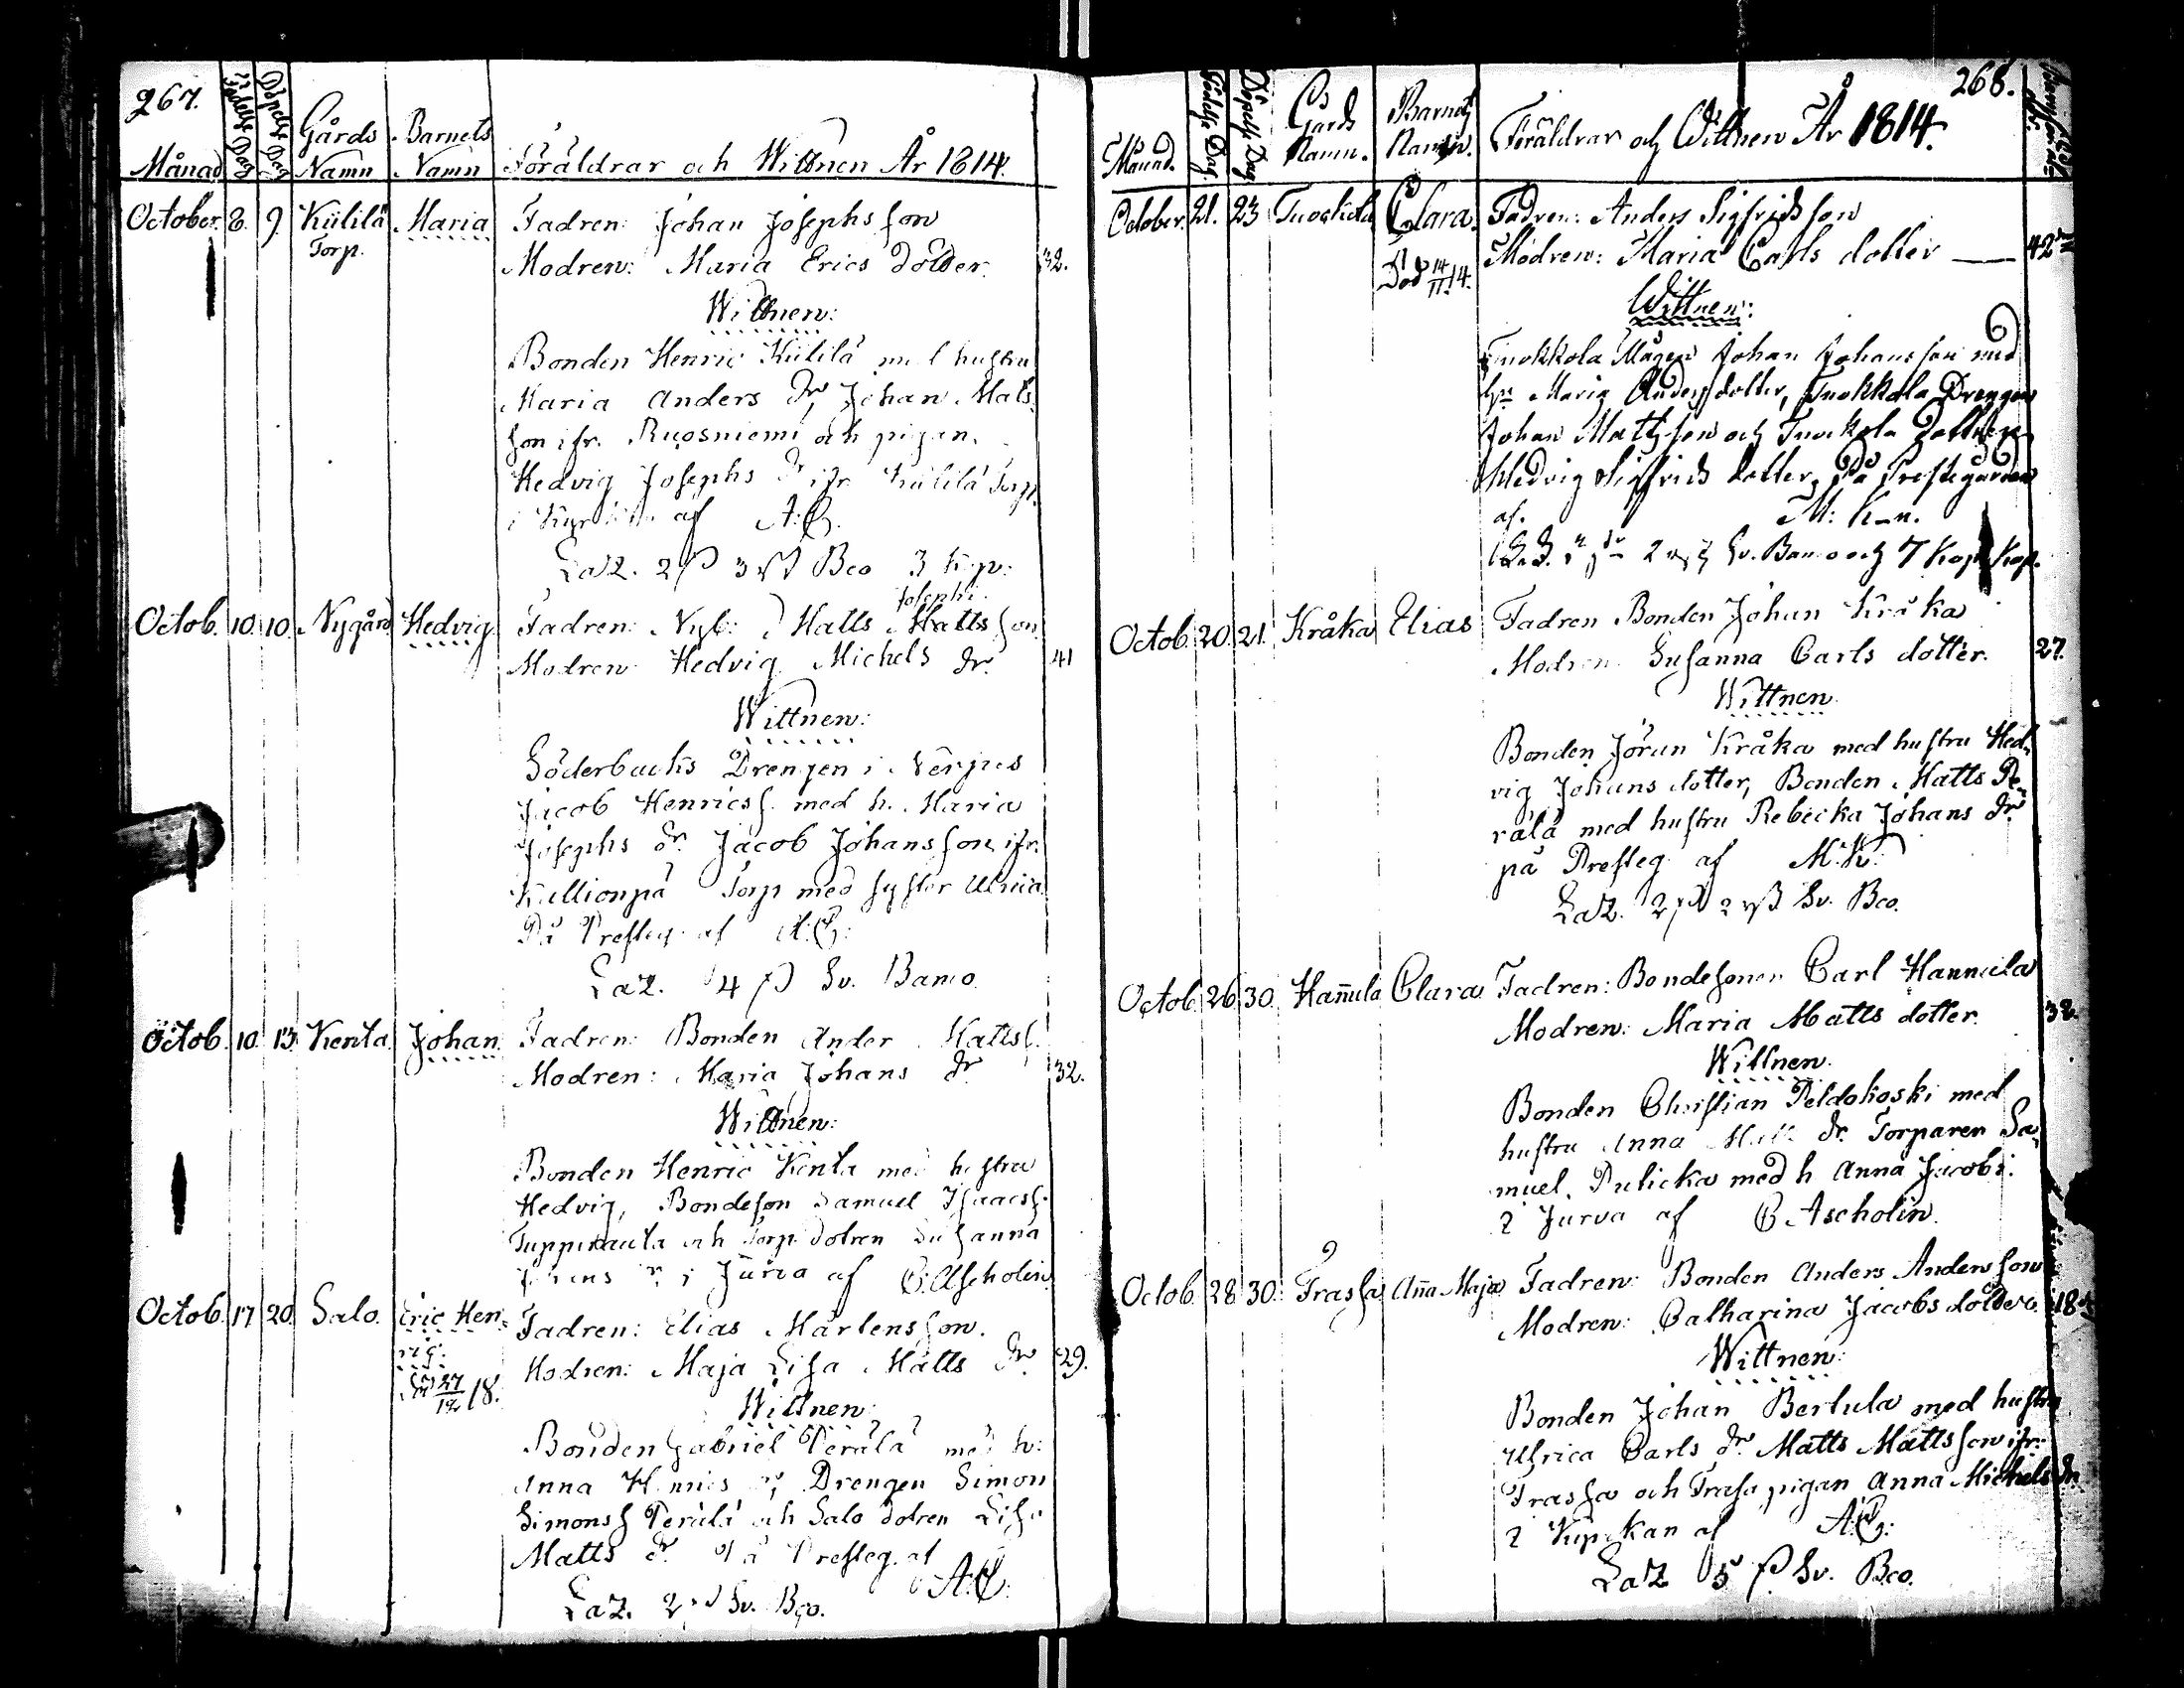 267.
Månad Födelse Dag Döpelse Dag Gårds Namn Barnets Namn Föräldrar och Wittnen År 1814.
October. 8. 9 Kiililä Torp. Maria Fadren: Johan Josephsson
Modren: Maria Erics dotter. 32.
Wittnen:
Bonden Henric Kiililä med hustru
Maria Anders dr, Johan Mats
son ifr. Ruosniemi och pigan
Hedvig Josephs dr ifr. Kiililä Torp.
i af A:C.
Laz. 2 ß 3 rst Bco 3 kop:
Josephi.
Octob. 10. 10. Nygård Hedvig Fadren: Nyb: Matts Mattsson
Modren Hedvig Michels dr. 41
Wittnen:
Söderbacks Drengen i Nerpes
Jacob Henricss. med h. Maria
Josephs dr. Jacob Johansson ifr.
Kallionpä Torp med syster Ulrica
På Presteg. af A:C:
Laz. 4 ß Sv. Banco
Octob. 10. 13. Kenta. Johan Fadren: Bonden Ander Mattss.
Modren: Maria Johans dr 32.
Wittnen:
Bonden Henric Kenta med hustru
Hedvig, Bondeson Samuel Isaacss.
Tuppirauta och Torp. dotren Susanna
Johans dr i Jurva af C. Ascholin
Octob. 17 20. Salo. Eric Hen-
ric. Fadren: Elias Mårtensson.
Död 27/12 18. Modren: Maja Lisa Matts dr 29.
Wittnen:
Bonden Gabriel Perälä med h:
Anna Henrics dr, Drengen Simon
Simonss Perälä och Salo dotren Lisa
Matts dr. På Presteg. af
A:C:
Laz. 2 ß Sv. Bco.
268.
Månad. Födelse Dag. Döpelse Dag. Gårds Namn. Barnets Namn. Föräldrar och Wittnen År 1814.
October. 21. 23 Tuockola Clara. Fadren: Anders Sigfridsson
Död 14/11 14. Modren: Maria Carls dotter — 42
Wittnen:
Tuokkola Mågen Johan Johansson med
hu Maria Andersdotter, Tuokkola Drengen
Johan Mattsson och Tuockola Dottren
Hedvig Sigfrids dotter, På Prestegården
af. M: K-n.
2 Sv. Banco och 7 Kop. Kop.
Octob. 20. 21. Kråka Elias Fadren Bonden Johan Kråka
Modren Susanna Carls dotter. 27.
Wittnen
Bonden Jöran Kråka med hustru Hed-
vig Johans dotter, Bonden Matts Pe-
rälä med hustru Rebecka Johans dr.
på Presteg af M.K.
Laz. 2 ß 2 rst Sv. Bco.
Octob. 26. 30. Hañula Clara Fadren: Bondesonen Carl Hannula
Modren: Maria Matts dotter. 32.
Wittnen.
Bonden Christian Peldokoski med
hustru Anna Matts dr. Torparen Sa-
muel. Pulicka med h Anna Jacobs:
i Jurva af C Ascholin.
Octob. 28. 30. Frassa Aña Maja Fadren: Bonden Anders Andersson
Modren: Catharina Jacobs dotter. 18
Wittnen:
Bonden Johan Bertula med hustru
Ulrica Carls dr. Matts Mattsson ifr:
Frassa och Frasa pigan Anna Michels dr.
i Kyrckan af A:C:
Laz 5 ß Sv. Bco.